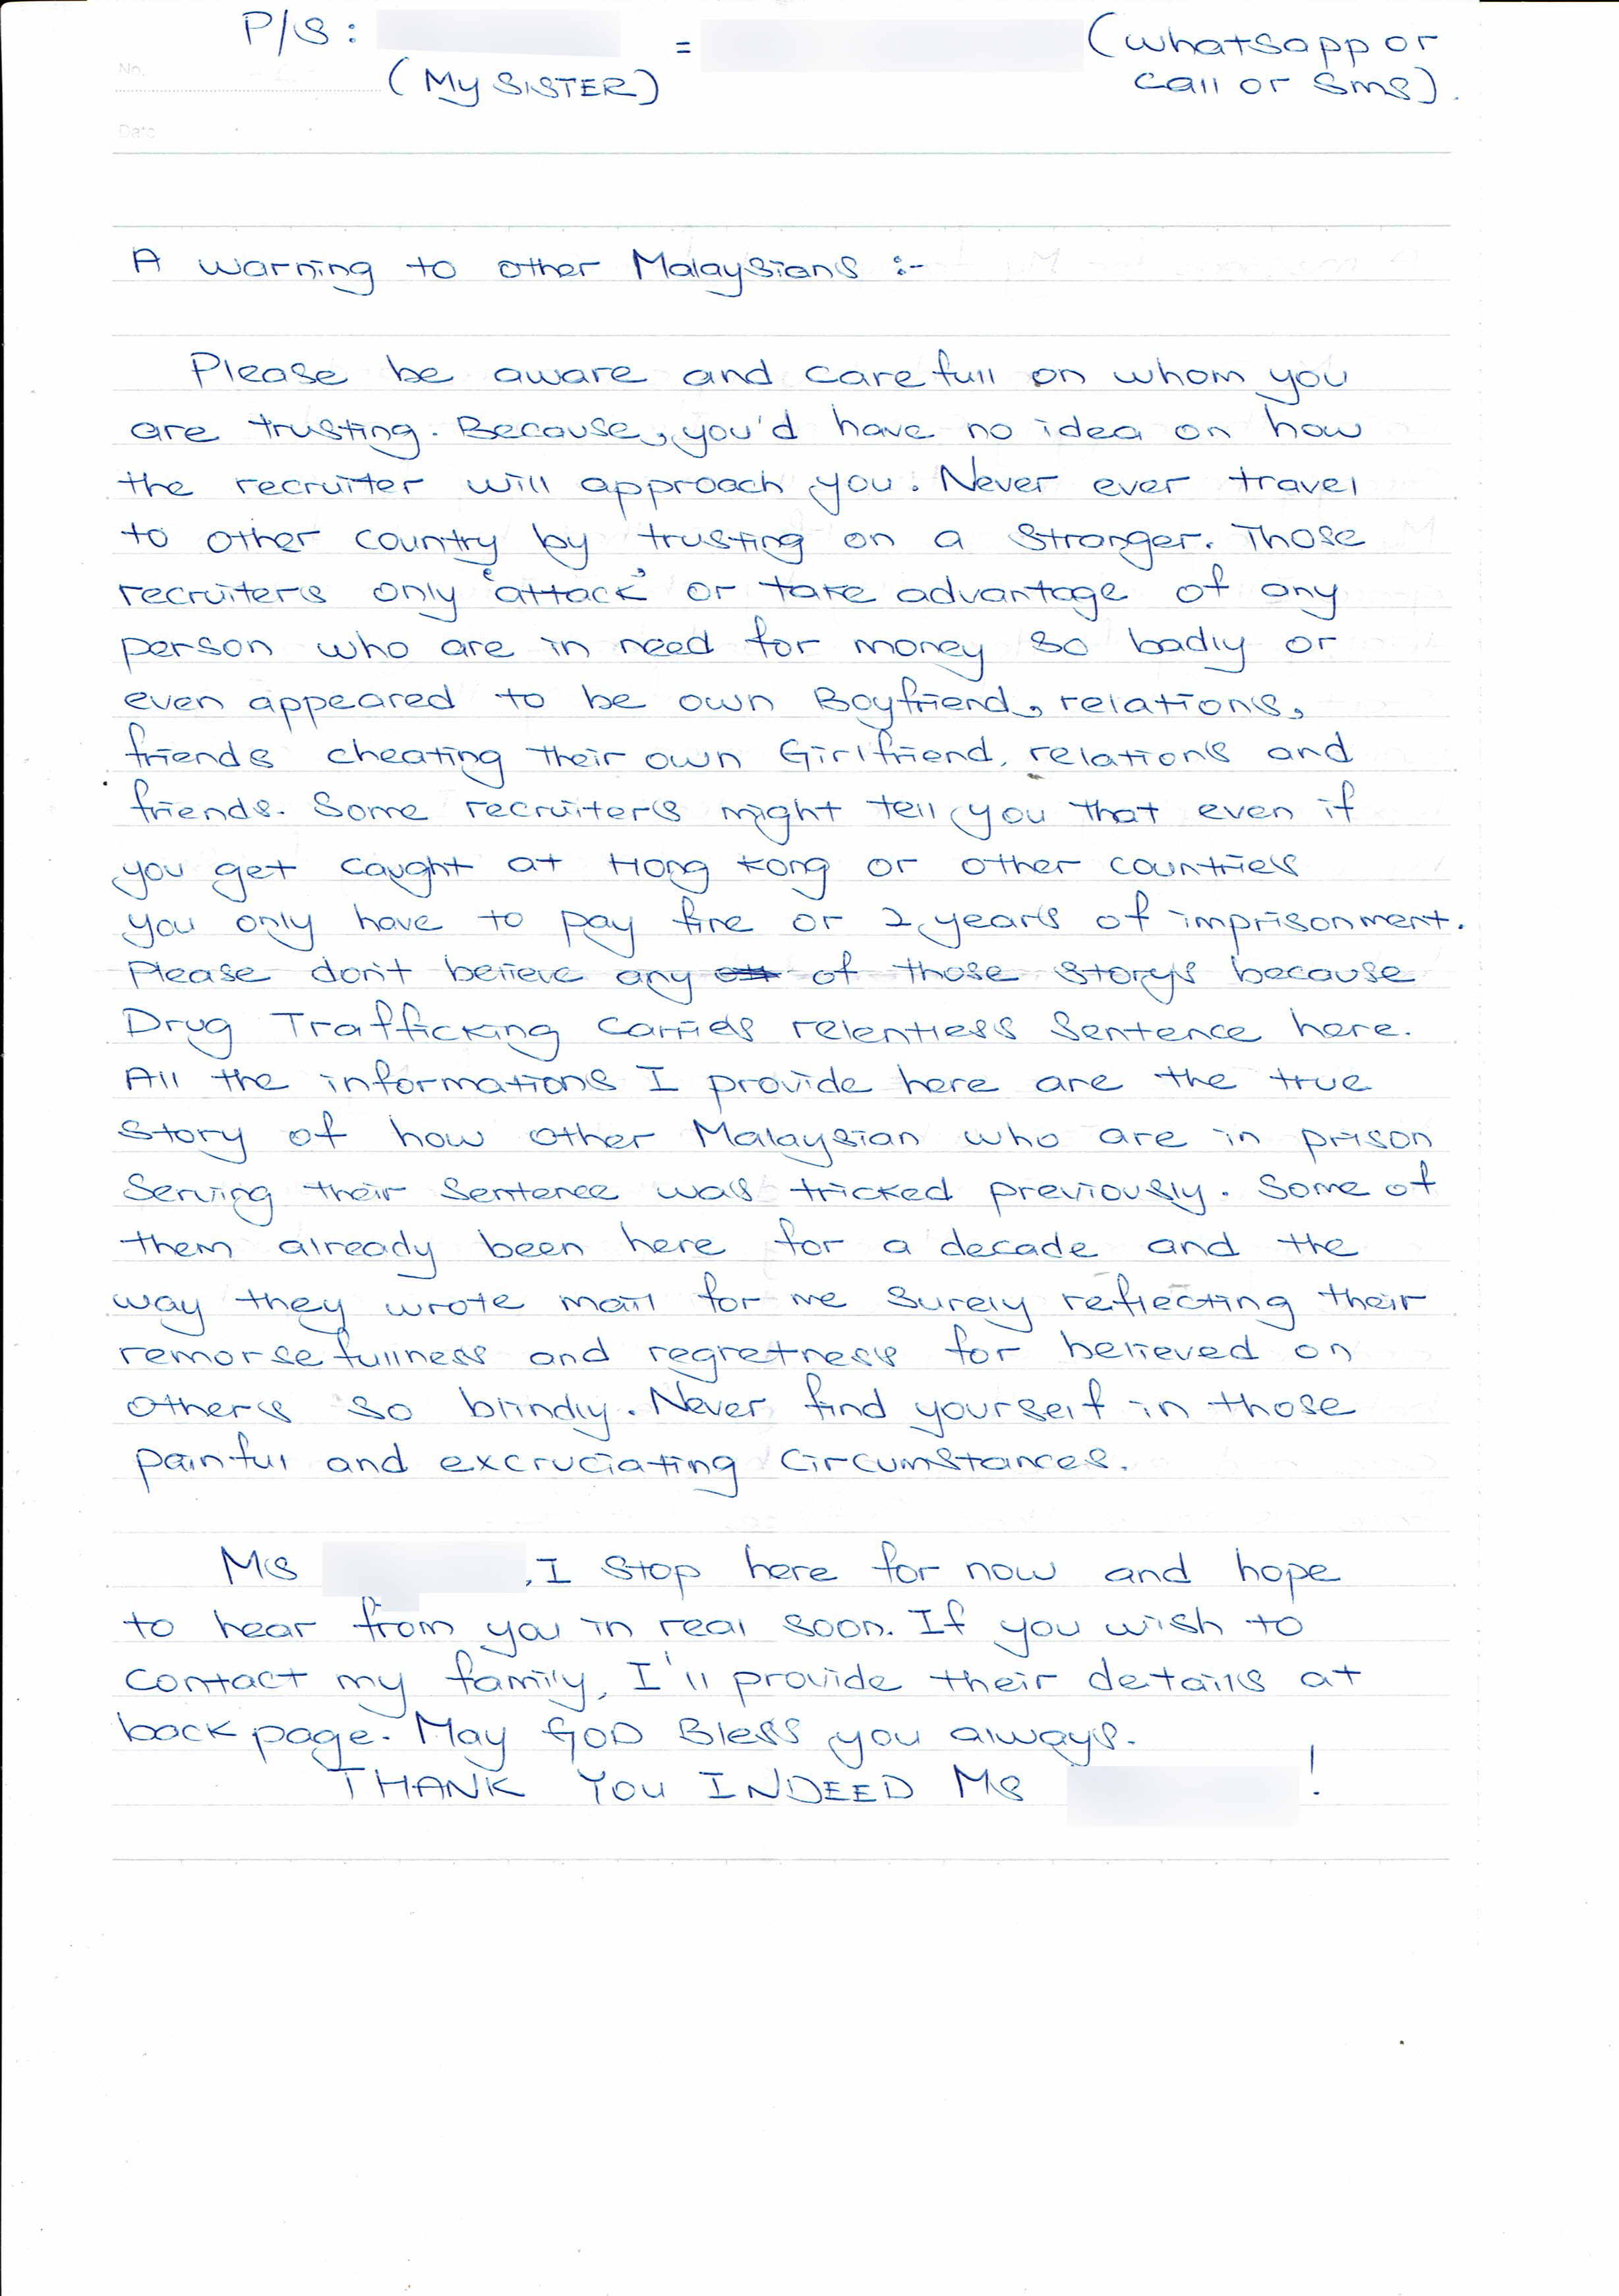 P/S : = (whatsapp or
(My SISTER) call or sms).
No.
Date
A warning to other Malaysians :-
Please be aware and carefull on whom you
are trusting. Because, you'd have no idea on how
the recruiter will approach you. Never ever travel
to other country by trusting on a stranger. Those
recruiters only 'attack' or take advantage of any
person who are in need for money so badly or
even appeared to be own Boyfriend, relations,
friends cheating their own Girlfriend, relations and
friends. Some recruiters might tell you that even if
you get caught at Hong Kong or other countries
you only have to pay fine or 2 years of imprisonment.
Please don't believe any of those storys because
Drug Trafficking carries relentless sentence here.
All the informations I provide here are the true
story of how other Malaysian who are in prison
serving their sentence was tricked previously. Some of
them already been here for a decade and the
way they wrote mail for me surely reflecting their
remorsefullness and regretness for believed on
others so blindly. Never find yourself in those
painful and excruciating circumstances.
Ms , I stop here for now and hope
to hear from you in real soon. If you wish to
contact my family, I'll provide their details at
back page. May GOD Bless you always.
THANK YOU INDEED MS !